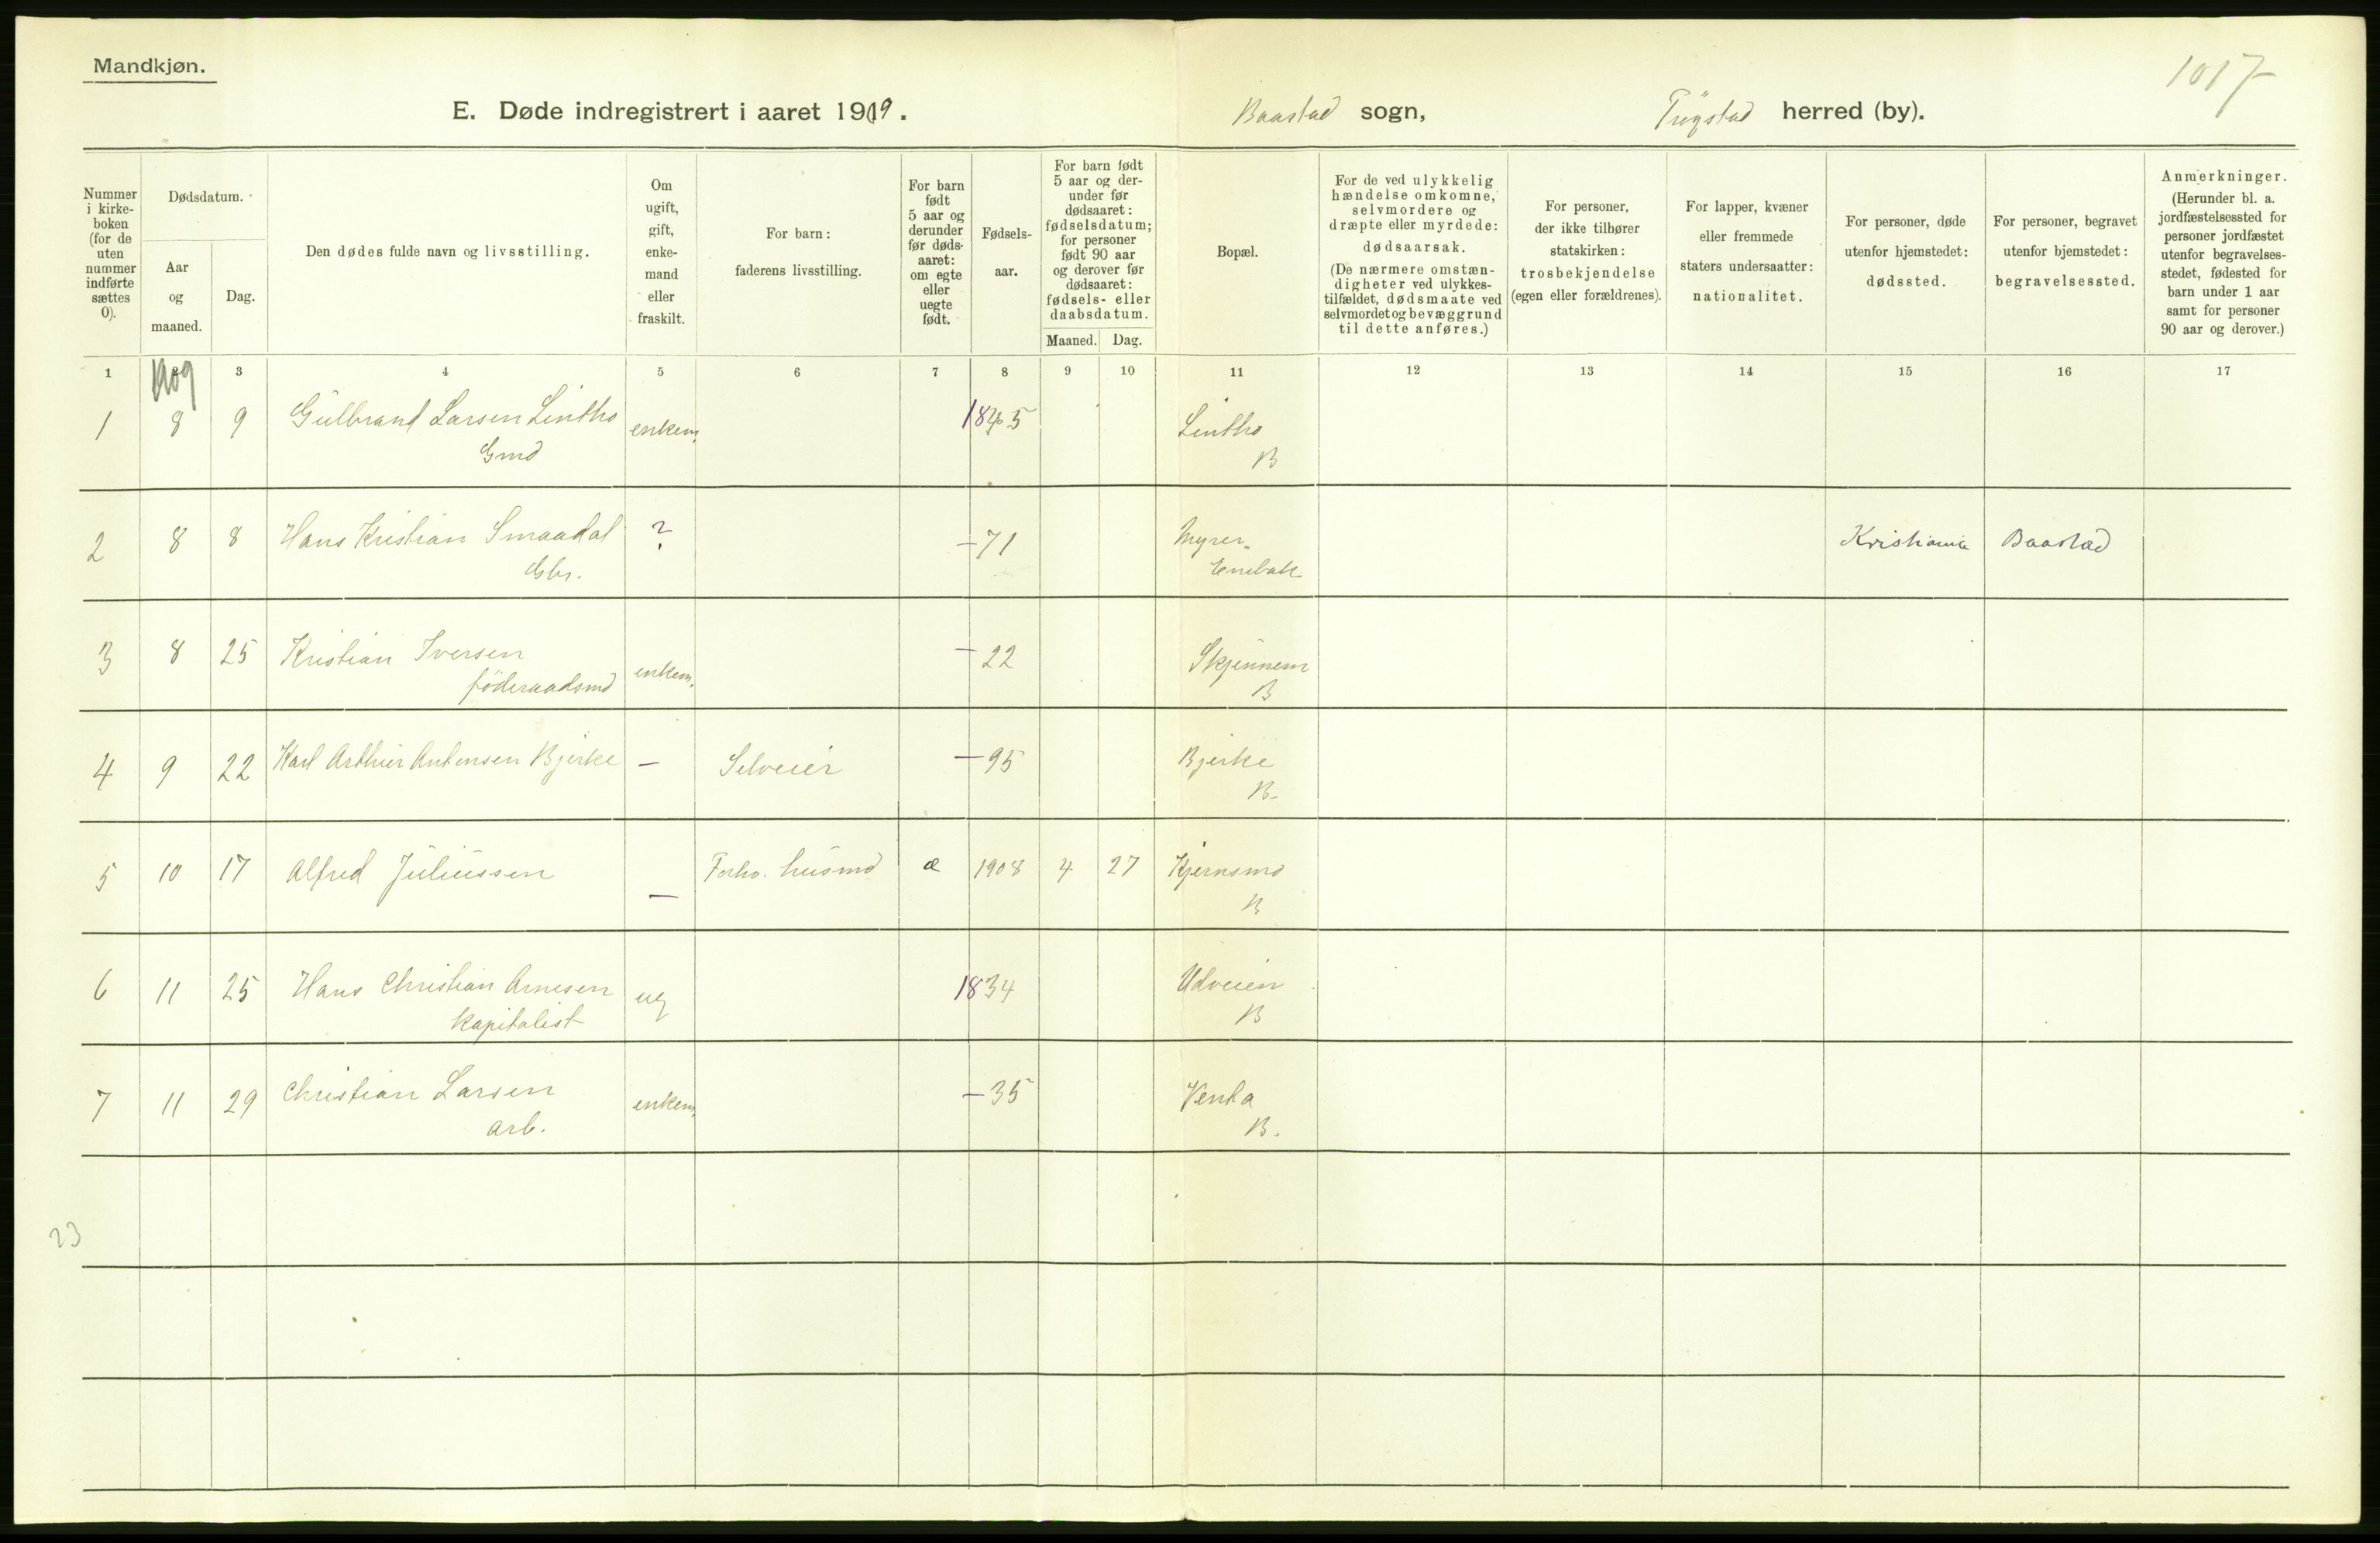 Mandkjøn.
1017
E. Døde indregistrert i aaret 1909.
Baastad sogn, Trøgstad herred (by).
Nummer i kirke-boken (for de uten nummer indførte sættes 0).
Dødsdatum.
Aar og maaned.
Dag.
Den dødes fulde navn og livsstilling.
Om ugift, gift, enke-mand eller fraskilt.
For barn: faderens livsstilling.
For barn født 5 aar og derunder før døds-aaret: om egte eller uegte født.
Fødsels-aar.
For barn født 5 aar og der-under før dødsaaret: fødselsdatum; for personer født 90 aar og derover før dødsaaret: fødsels- eller daabsdatum.
Maaned. Dag.
Bopæl.
For de ved ulykkelig hændelse omkomne, selvmordere og dræpte eller myrdede: dødsaarsak. (De nærmere omstæn-digheter ved ulykkes-tilfældet, dødsmaate ved selvmordet og bevæggrund til dette anføres.)
For personer, der ikke tilhører statskirken: trosbekjendelse (egen eller forældrenes).
For lapper, kvæner eller fremmede staters undersaatter: nationalitet.
For personer, døde utenfor hjemstedet: dødssted.
For personer, begravet utenfor bjemstedet: begravelsessted.
Anmerkninger. (Herunder bl. a. jordfæstelsessted for personer jordfæstet utenfor begravelses-stedet, fødested for barn under 1 aar samt for personer 90 aar og derover.)
1 3 4 5 6 7 8 9 10 11 12 13 14 15 16 17
1909
1 8 9 Gulbrand Larsen Lintho enkem. 1845 Lintho
Gmd B
2 8 8 Hans Kristian Smaadal ? -71 Myrer Kristiania Baastad
Gbr. Enebak
3 8 25 Kristian Iversen enkem. -22 Skjennem
föderaadsmd B
4 9 22 Karl Arthur Antonsen Bjerke — Selveier -95 Bjerke
B.
5 10 17 Alfred Juliussen — Forhv. husmd æ 1908 4 27 Kjernsmo
B
6 11 25 Hans Christian Arnesen ug 1834 Udveien
kapitalist B
7 11 29 Christian Larsen enkem. -35 Venka
arb. B.
23